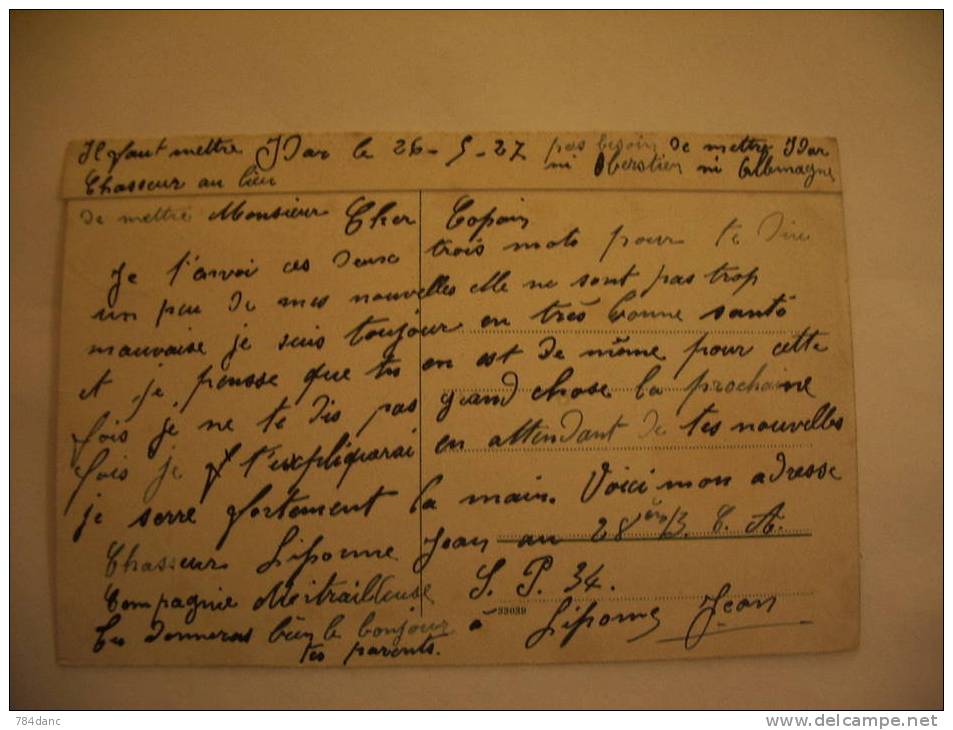 Il faut mettre Idar le 26-5-27 pas besoin de mettre Idar
Chasseur au lieu ni Oberstien ni Allemagne
de mettre Monsieur Cher Copain
Je t'envoi ces deux trois mots pour te dire
un peu de mes nouvelles elle ne sont pas trop
mauvaise je suis toujour en très bonne santé
et je pensse que tu en est de même pour cette
fois je ne te dis pas grand chose la prochaine
fois je t'expliquarai en attendant de tes nouvelles
je serre fortement la main. Voici mon adresse
Chasseur Liponne Jean au 28ème B. C. A.
Compagnie Mitrailleuse S. P. 34.
Tu donneras bien le bonjour à Liponne Jean
tes parents.
33039
784danc
www.delcampe.net